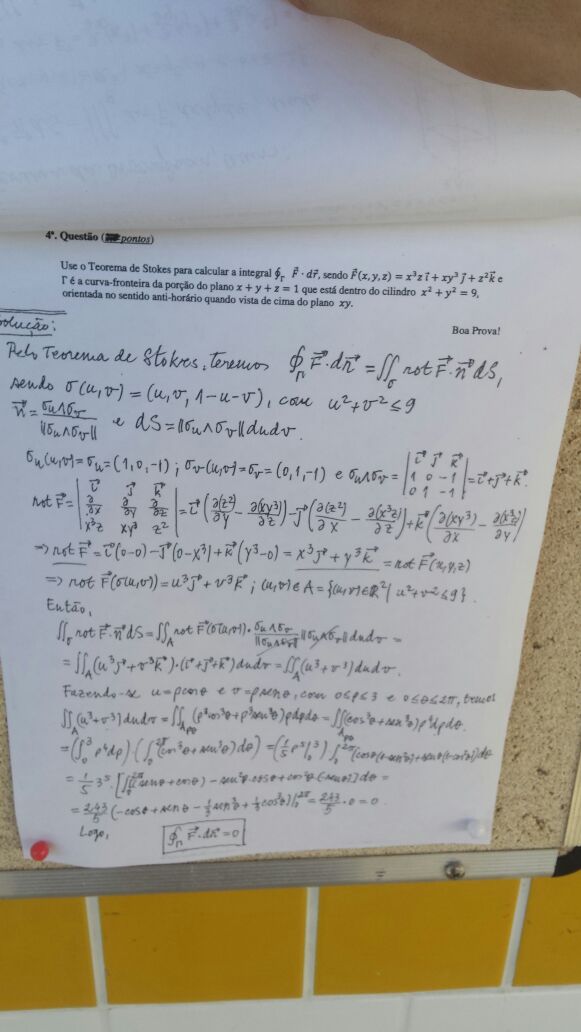 4ª. Questão ( pontos)
Use o Teorema de Stokes para calcular a integral ∮_Γ F⃗ · dr⃗, sendo F⃗(x, y, z) = x³z i⃗ + xy³ j⃗ + z²k⃗ e
Γ é a curva-fronteira da porção do plano x + y + z = 1 que está dentro do cilindro x² + y² = 9,
orientada no sentido anti-horário quando vista de cima do plano xy.
Boa Prova!
olução:
Pelo Teorema de Stokes, teremos ∮_Γ F⃗·dr⃗ = ∬_σ rot F⃗·n⃗ dS,
sendo σ(u,v) = (u, v, 1-u-v), com u²+v² ≤ 9
n⃗ = σu∧σv / ‖σu∧σv‖ e dS = ‖σu∧σv‖ dudv.
σu(u,v) = σu = (1,0,-1) ; σv(u,v) = σv = (0,1,-1) e σu∧σv = | i⃗ j⃗ k⃗ ; 1 0 -1 ; 0 1 -1 | = i⃗+j⃗+k⃗.
rot F⃗ = | i⃗ j⃗ k⃗ ; ∂/∂x ∂/∂y ∂/∂z ; x³z xy³ z² | = i⃗(∂(z²)/∂y - ∂(xy³)/∂z) - j⃗(∂(z²)/∂x - ∂(x³z)/∂z) + k⃗(∂(xy³)/∂x - ∂(x³z)/∂y)
⇒ rot F⃗ = i⃗(0-0) - j⃗(0-x³) + k⃗(y³-0) = x³j⃗ + y³k⃗ = rot F⃗(x,y,z)
⇒ rot F⃗(σ(u,v)) = u³j⃗ + v³k⃗ ; (u,v) ∈ A = {(u,v)∈ℝ² | u²+v² ≤ 9}.
Então,
∬_σ rot F⃗·n⃗ dS = ∬_A rot F⃗(σ(u,v)) · σu∧σv / ‖σu∧σv‖ ‖σu∧σv‖ dudv =
= ∬_A (u³j⃗ + v³k⃗)·(i⃗+j⃗+k⃗) dudv = ∬_A (u³+v³) dudv.
Fazendo-se u = ρcosθ e v = ρsenθ, com 0≤ρ≤3 e 0≤θ≤2π, temos
∬_A (u³+v³) dudv = ∬_Aρθ (ρ³cos³θ + ρ³sen³θ) ρdρdθ = ∬(cos³θ + sen³θ) ρ⁴dρdθ.
= (∫₀³ ρ⁴dρ)·(∫₀^2π (cos³θ + sen³θ) dθ) = (1/5 ρ⁵|₀³) ∫₀^2π [cosθ(1-sen²θ) + senθ(1-cos²θ)] dθ
= 1/5 3⁵·[∫₀^2π (senθ + cosθ) - sen²θ·cosθ + cos²θ(-senθ)] dθ =
= 243/5 (-cosθ + senθ - 1/3 sen³θ + 1/3 cos³θ)|₀^2π = 243/5 · 0 = 0
Logo, ∮_Γ F⃗·dr⃗ = 0